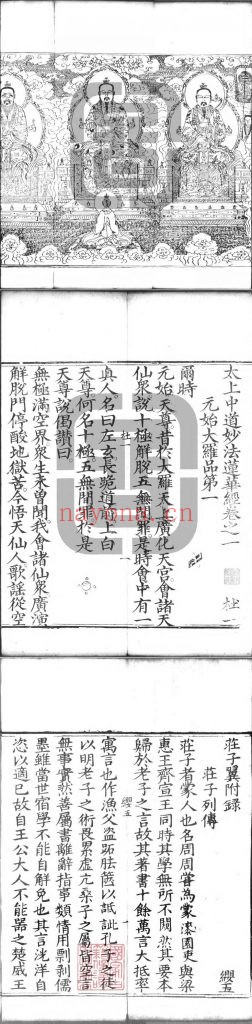 太上中道妙法蓮華經卷之一 杜一
元始大羅品第一
爾時
元始天尊昔於大羅天上廣化天宮會諸天
仙衆說十極解脫五無間罪是時會中有一
真人名曰左玄長跪道前上白
杜一
天尊何名十極五無間罪於是
天尊說偈讚曰
無極滿空界衆生未曾聞我會諸仙衆廣演
解脫門停酸地獄苦今悟天仙人歌謡從空
nayona.cn
莊子翼附錄 纓五
莊子列傳
莊子者蒙人也名周周嘗為蒙漆園吏與梁
惠王齊宣王同時其學無所不闚然其要本
歸於老子之言故其著書十餘萬言大抵率
纓五
寓言也作漁父盜跖胠篋以詆訿孔子之徒
以明老子之術畏累虛亢桑子之屬皆空言
無事實然善屬書離辭指事類情用剽剝儒
墨雖當世宿學不能自解免也其言洸洋自
恣以適己故自王公大人不能器之楚威王